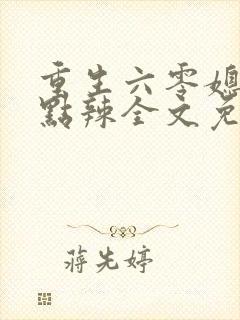 重生六零媳
點辣全文免
蔣先婷